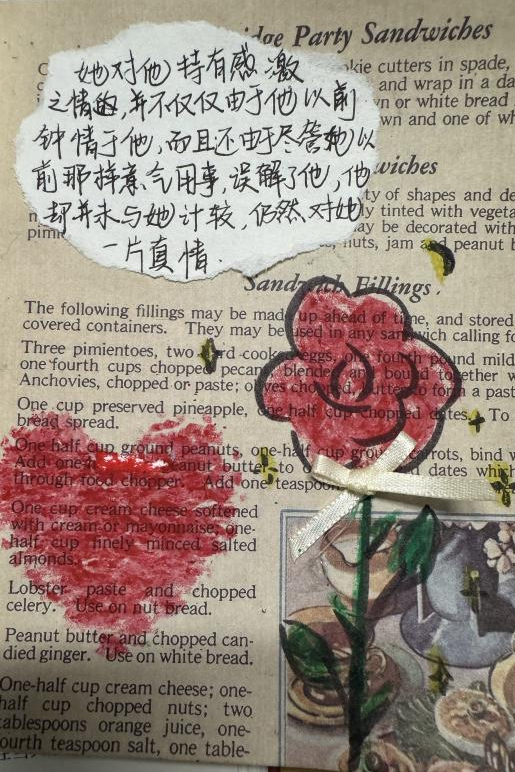 她对他持有感激
之情的,并不仅仅由于他以前
钟情于他,而且还由于尽管她以
前那样意气用事,误解了他,他
却并未与她计较,仍然对她
一片真情.
idge Party Sandwiches
okie cutters in spade,
and wrap in a da
wn or white bread
own and one of wh
wiches
ty of shapes and de
ly tinted with vegeta
ay be decorated with
nuts, jam and peanut b
Sandwich Fillings
The following fillings may be made up ahead of time, and stored
covered containers. They may be used in any sandwich calling fo
Three pimientoes, two hard cooked eggs, one fourth pound mild
one fourth cups chopped pecans blended and bound together w
Anchovies, chopped or paste; olives chopped, butter to form a past
One cup preserved pineapple, one half cup chopped dates. To
bread spread.
One half cup ground peanuts, one-half cup ground carrots, bind w
Add one- peanut butter to dates which
through food chopper. Add one teaspoon
One cup cream cheese softened
with cream or mayonnaise, one-
half cup finely minced salted
almonds.
Lobster paste and chopped
celery. Use on nut bread.
Peanut butter and chopped can-
died ginger. Use on white bread.
One-half cup cream cheese; one-
half cup chopped nuts; two
tablespoons orange juice, one-
fourth teaspoon salt, one table-